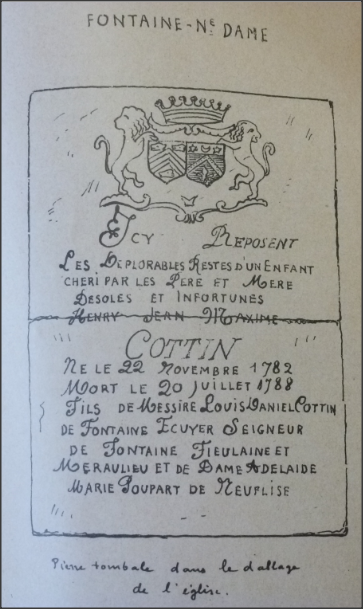 FONTAINE-Nᴱ DAME
ICY REPOSENT
LES DEPLORABLES RESTES D'UN ENFANT
CHERI PAR LES PERE ET MERE
DESOLES ET INFORTUNES
HENRY JEAN MAXIME
COTTIN
NE LE 22 NOVEMBRE 1782
MORT LE 20 JUILLET 1788
FILS DE MESSIRE LOUIS DANIEL COTTIN
DE FONTAINE ECUYER SEIGNEUR
DE FONTAINE FIEULAINE ET
MERAULIEU ET DE DAME ADELAIDE
MARIE POUPART DE NEUFLISE
Pierre tombale dans le dallage
de l'église.